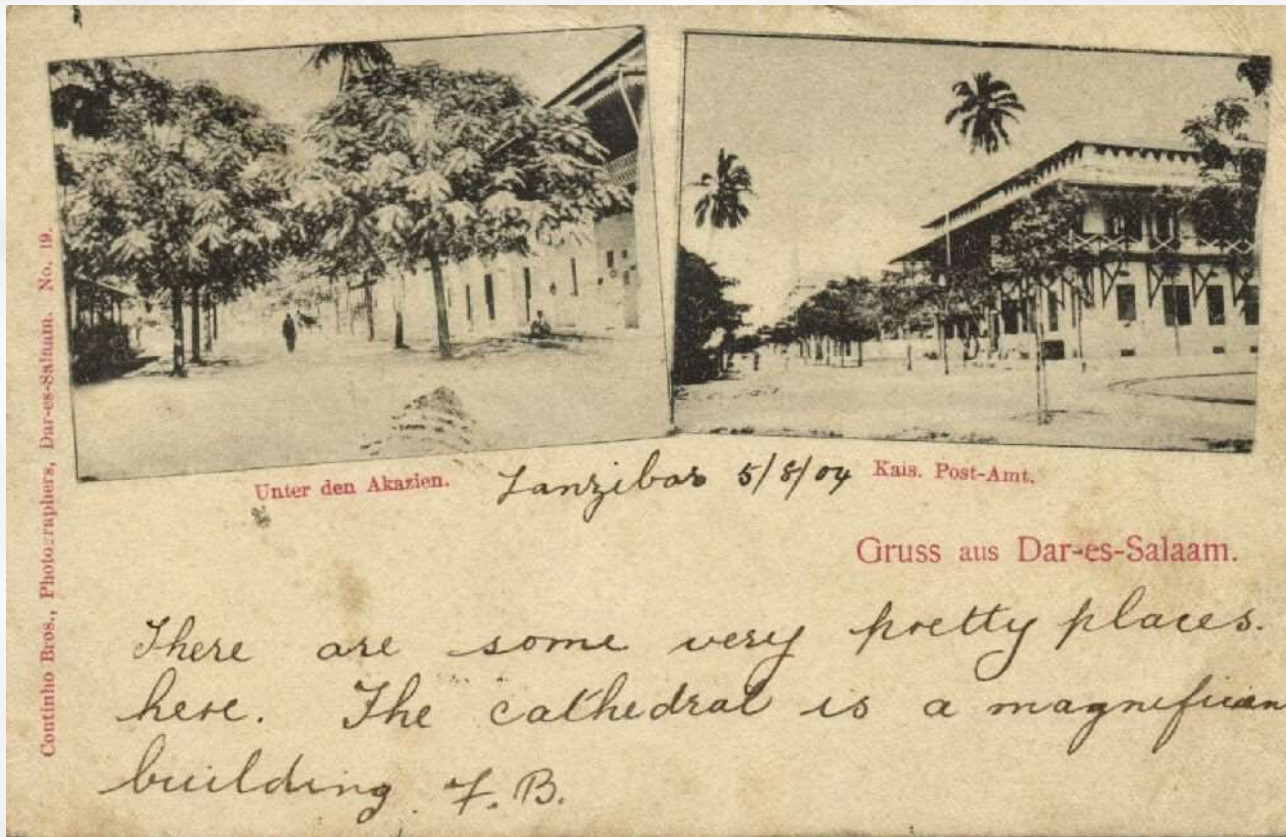 Coutinho Bros., Photographers, Dar-es-Salaam. No. 19.
Unter den Akazien.
Zanzibar 5/8/04
Kais. Post-Amt.
Gruss aus Dar-es-Salaam.
There are some very pretty places.
here. The cathedral is a magnifican
building F.B.